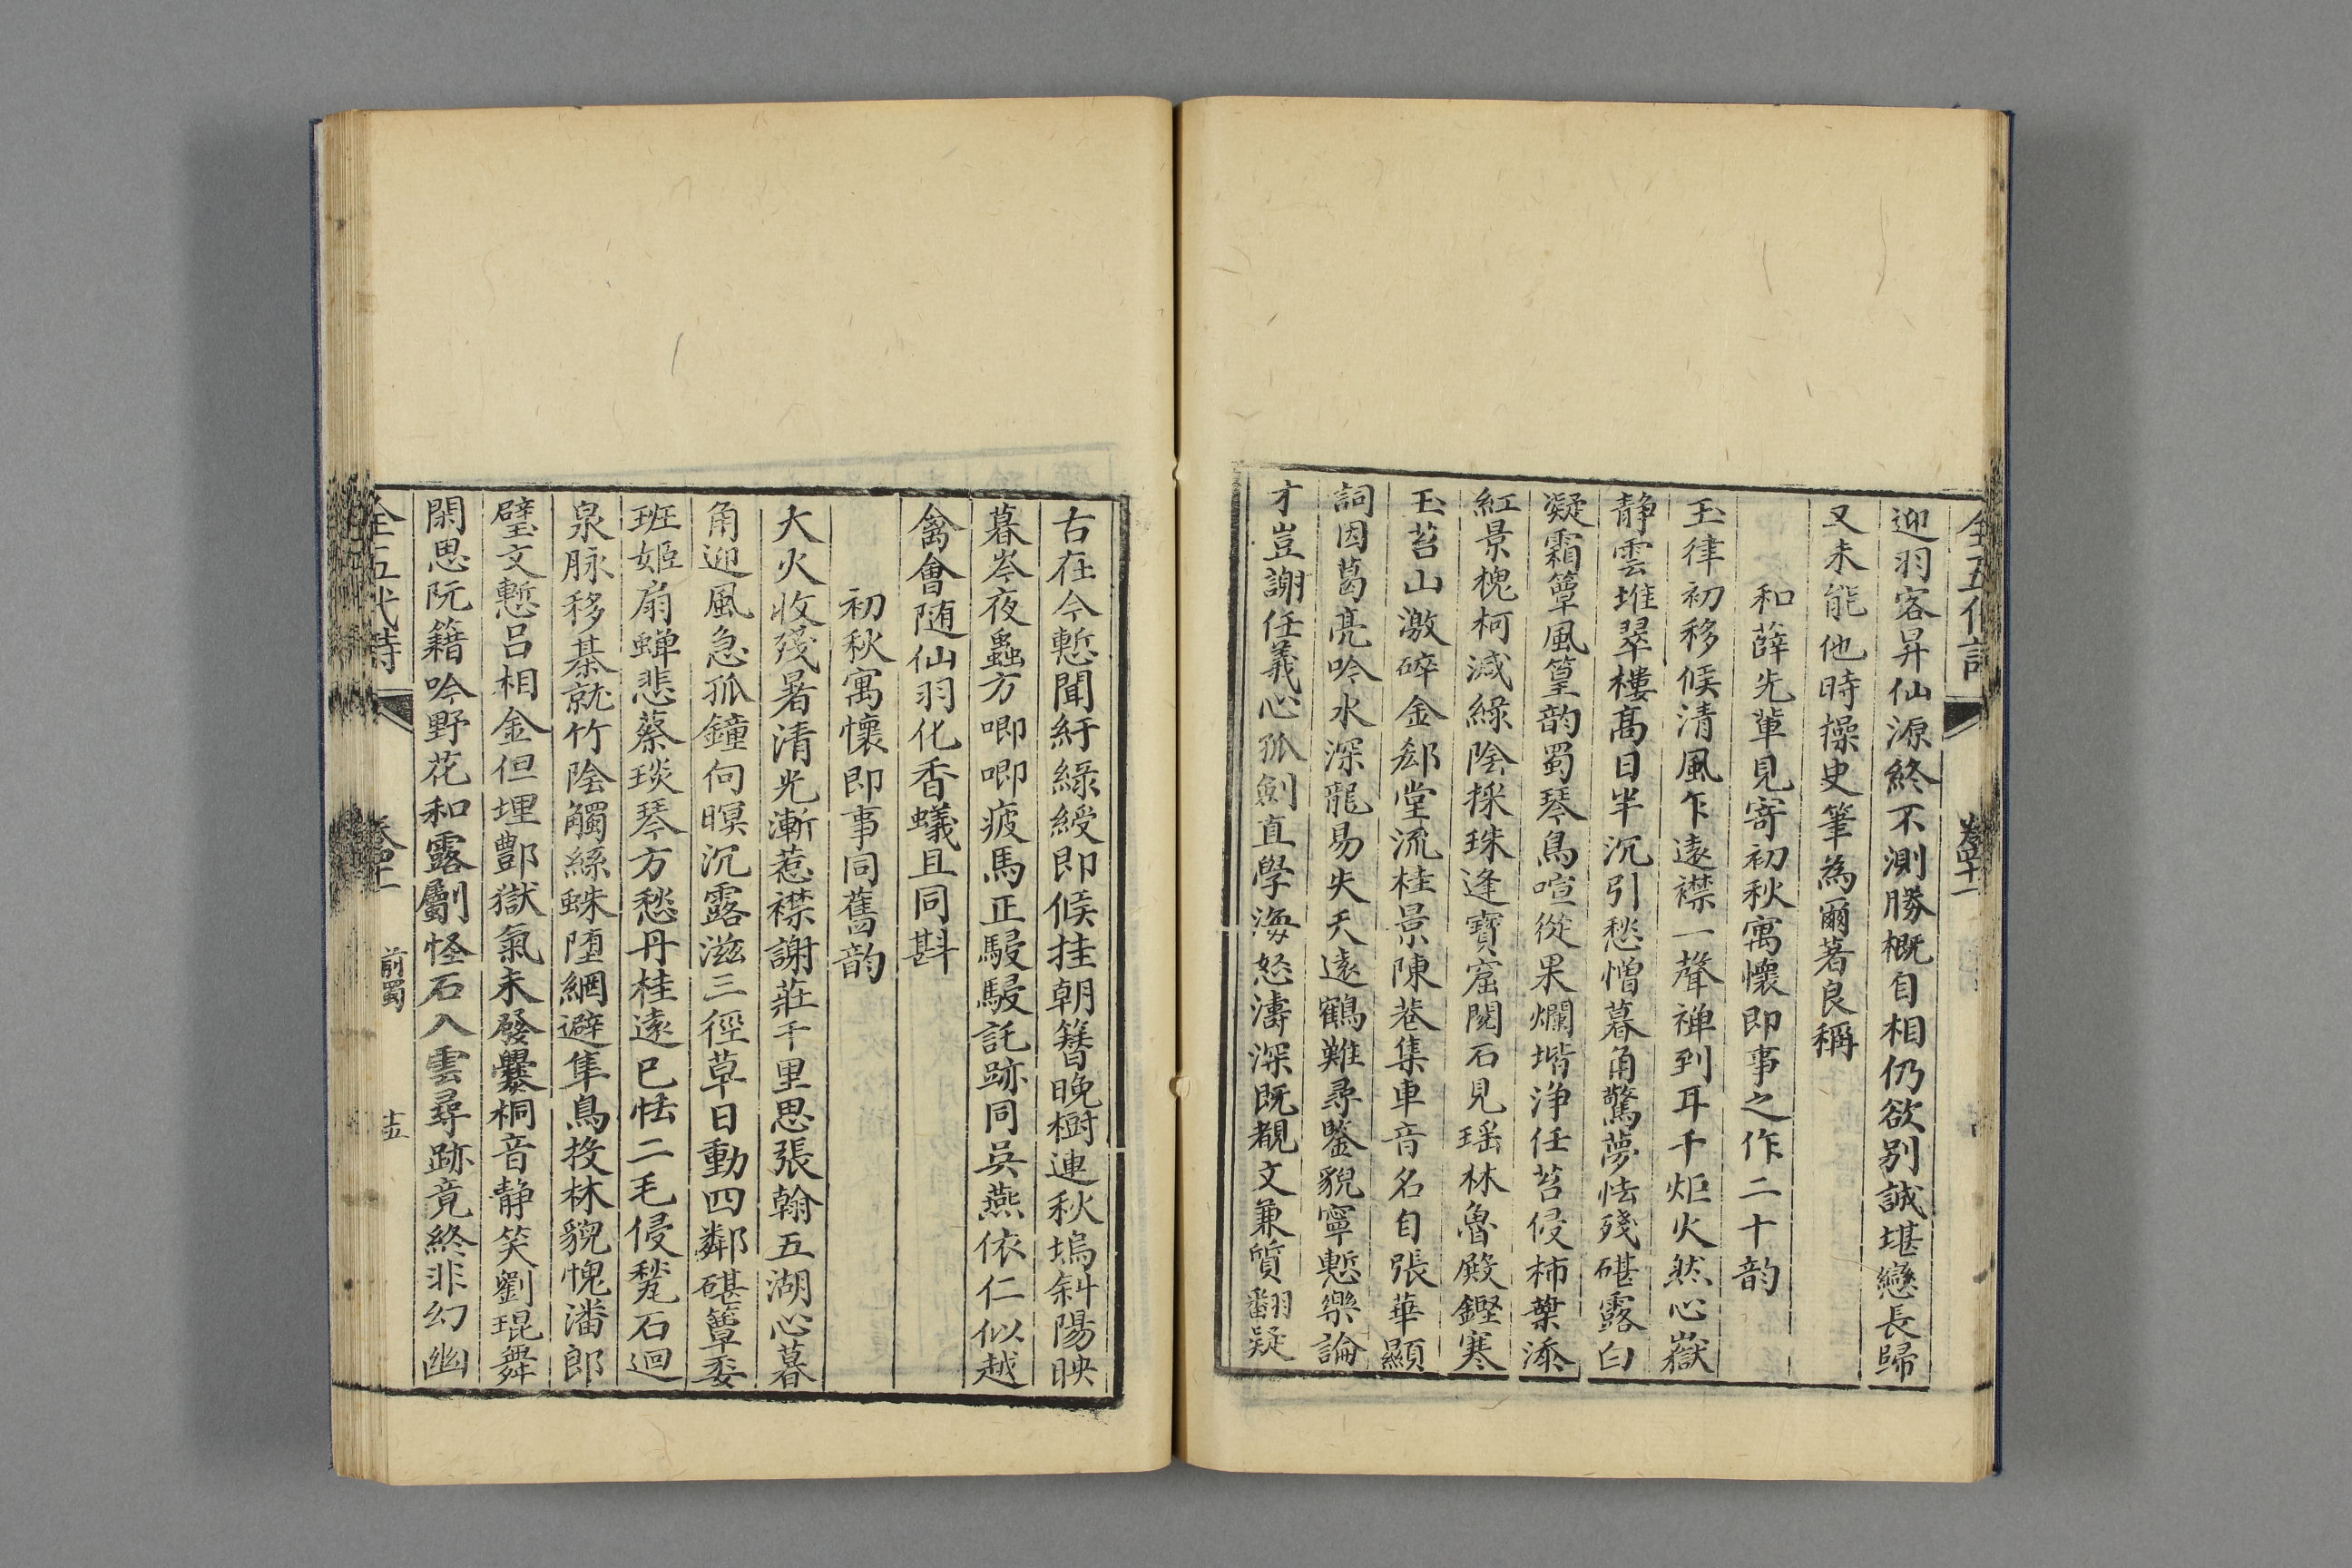 全五代詩
卷四十一
迎羽客昇仙源終不測勝概自相仍欲别誠堪戀長歸
又未能他時操史筆為爾著良稱
和薛先輩見寄初秋寓懷即事之作二十韵
玉律初移候清風乍遠襟一聲蟬到耳千炬火然心嶽
静雲堆翠樓髙日半沉引愁憎暮角驚夢怯殘碪露白
凝霜簟風篁韵蜀琴鳥喧從果爛堦浄任苔侵柿葉添
紅景槐柯減緑陰採珠逢寶窟閲石見瑶林魯殿鏗寒
玉苔山激碎金郄堂流桂景陳巷集車音名自張華顯
詞因葛亮吟水深龍易失天遠鶴難尋鑒貌寧慙樂論
才豈謝任義心孤劍直學海怒濤深既覩文兼質翻疑
古在今慙聞紆緑綬即候挂朝簮晩樹連秋塢斜陽映
暮岑夜蟲方唧唧疲馬正駸駸託跡同吳燕依仁似越
禽會随仙羽化香蟻且同斟
初秋寓懷即事同舊韵
大火收殘暑清光漸惹襟謝莊千里思張翰五湖心暮
角迎風急孤鐘向暝沉露滋三徑草日動四鄰碪簟委
班姬扇蟬悲蔡琰琴方愁丹桂遠已怯二毛侵甃石迴
泉脉移棊就竹陰觸絲蛛堕網避隼鳥投林貌愧潘郎
璧文慙吕相金但埋酆獄氣未發爨桐音静笑劉琨舞
閑思阮籍吟野花和露劚怪石入雲尋跡竟終非幻幽
全五代詩
卷四十一
前蜀
十五